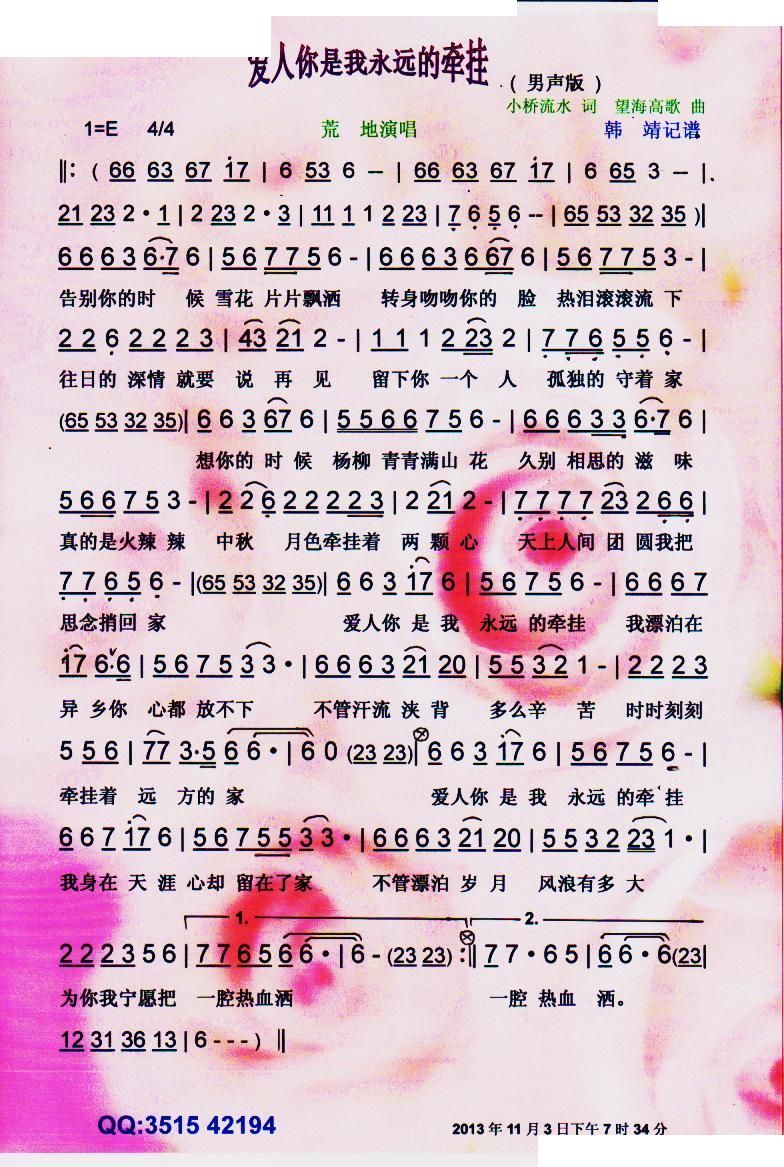 爱人你是我永远的牵挂
( 男声版 )
小桥流水 词 望海高歌 曲
1=E 4/4 荒 地演唱 韩 靖记谱
‖: ( 66 63 67 17 | 6 53 6 – | 66 63 67 17 | 6 65 3 – |.
21 23 2 · 1 | 2 23 2 · 3 | 11 1 1 2 23 | 7 6 5 6 -- | 65 53 32 35 )|
6 6 6 3 6·7 6 | 5 6 7 7 5 6 - | 6 6 6 3 6 67 6 | 5 6 7 7 5 3 - |
告别你的时 候 雪花 片片飘洒 转身吻吻你的 脸 热泪滚滚流 下
2 2 6 2 2 2 3 | 43 21 2 - | 1 1 1 2 23 2 | 7 7 6 5 5 6 - |
往日的 深情 就要 说 再 见 留下你 一个 人 孤独的 守着 家
(65 53 32 35)| 6 6 3 67 6 | 5 5 6 6 7 5 6 - | 6 6 6 3 3 6·7 6 |
想你的 时 候 杨柳 青青满山 花 久别 相思的 滋 味
5 6 6 7 5 3 - | 2 2 6 2 2 2 2 3 | 2 21 2 - | 7 7 7 7 23 2 6 6 |
真的是火辣 辣 中秋 月色牵挂着 两 颗 心 天上人间 团 圆我把
7 7 6 5 6 - |(65 53 32 35)| 6 6 3 17 6 | 5 6 7 5 6 - | 6 6 6 7
思念捎回 家 爱人你 是 我 永远 的牵挂 我漂泊在
17 6·6 | 5 6 7 5 3 3 · | 6 6 6 3 21 20 | 5 5 3 2 1 - | 2 2 2 3
异 乡你 心都 放不下 不管汗流 浃 背 多么辛 苦 时时刻刻
5 5 6 | 77 3·5 6 6 · | 6 0 (23 23)| 6 6 3 17 6 | 5 6 7 5 6 - |
牵挂着 远 方的 家 爱人你 是 我 永远 的牵 挂
6 6 7 17 6 | 5 6 7 5 5 3 3 · | 6 6 6 3 21 20 | 5 5 3 2 23 1 · |
我身在 天 涯 心却 留在了家 不管漂泊 岁 月 风浪有多 大
1. 2.
2 2 2 3 5 6 | 7 7 6 5 6 6 · | 6 - (23 23) :‖ 7 7 · 6 5 | 6 6 · 6 (23|
为你我宁愿把 一腔热血洒 一腔 热血 洒。
12 31 36 13 | 6 - - - ) ‖
QQ:3515 42194 2013 年 11 月 3 日下午 7 时 34 分